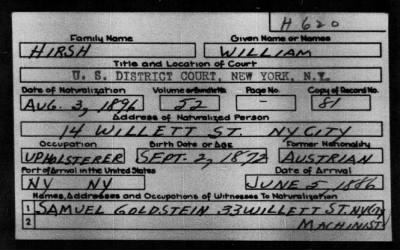 H 620
Family Name Given Name or Names
HIRSH WILLIAM
Title and Location of Court
U. S. DISTRICT COURT, NEW YORK, N.Y.
Date of Naturalization Volume or Bundle No. Page No. Copy of Record No.
AUG. 3, 1896 52 - 81
Address of Naturalized Person
14 WILLETT ST. NY CITY
Occupation Birth Date or Age Former Nationality
UPHOLSTERER SEPT. 2, 1873 AUSTRIAN
Port of Arrival in the United States Date of Arrival
NY NY JUNE 5, 1886
Names, Addresses and Occupations of Witnesses To Naturalization
1 SAMUEL GOLDSTEIN 33 WILLETT ST. NY City
2 MACHINIST